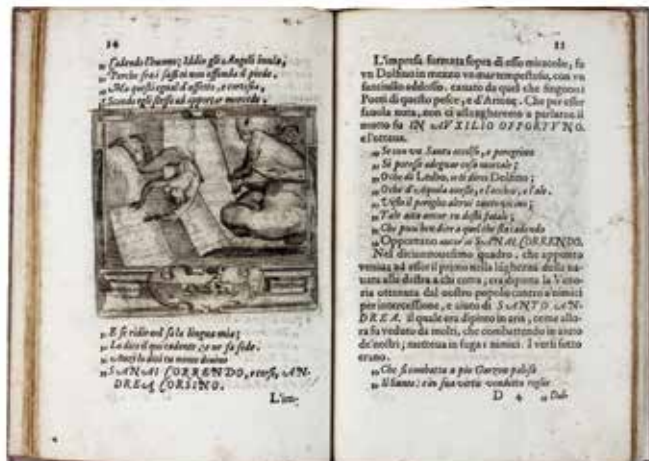 54
„ Cadendo l'huomo; Iddio gli Angeli inuia,
„ Perche fra i sassi non offenda il piede.
„ Ma questi egual d'affetto, e cortesia,
„ Scende egli stesso ad apportar mercede.
„ E se ridir nol sà la lingua mia;
„ Lo dice il qui cadente, e ne fa fede.
„ Anzi lo dici tu nome diuino
„ SANAI CORRENDO, AN-
DREA CORSINO.
L'im-
55
L'impresa formata sopra di esso miracolo, fu
vn Dolfino in mezzo vn mar tempestoso, con vn
fanciullo addosso, cauato da quel che fingono i
Poeti di questo pesce, e d'Arione. Che per esser
fauola nota, non ci allungheremo a parlarne. il
motto fu IN AVXILIO OPPORTVNO.
e l'ottaua.
„ Se con vn Santo eccelso, e peregrino
„ Si potesse adeguar cosa mortale;
„ O che di Lesbo, io ti direi Dolfino;
„ O che d'Aquila hauesti, e l'occhio, e l'ale.
„ Visto il periglio altrui
„ Tale aita ancor tu desti fatale;
„ Che puoi ben dire a quel che sta cadendo
„ Opportuno ancor'io SANAI CORRENDO.
Nel diciannouesimo quadro, che appunto
veniua ad esser il primo nella larghezza della na-
uata alla destra a chi entra; era dipinta la Vitto-
ria ottenuta dal nostro popolo contro a'nimici
per intercessione, e aiuto di SANTO AN-
DREA. il quale era dipinto in aria, come allo-
ra fu veduto da molti, che combattendo in aiuto
de'nostri; metteua in fuga i nimici. I versi sotto
erano.
„ Che si combatta a piè Garzon
„ Il Santo; e in sua virtù vendetta
D 4 „ Dub-